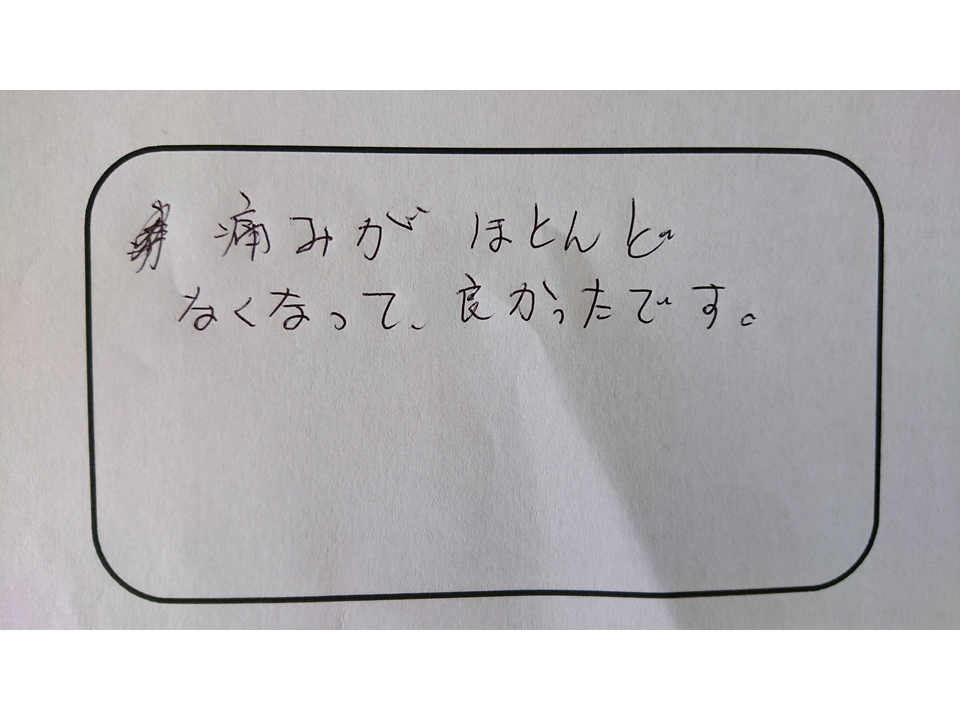 痛みがほとんど
なくなって、良かったです。